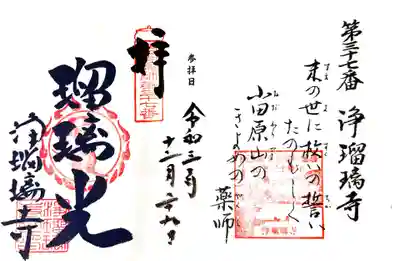 第三十七番 浄瑠璃寺
末の世に救いの誓い
たのもしく
小田原山の
きよめの
薬師
参拝日
令和三年
十二月二十九日
拝
瑠璃光
浄瑠璃寺